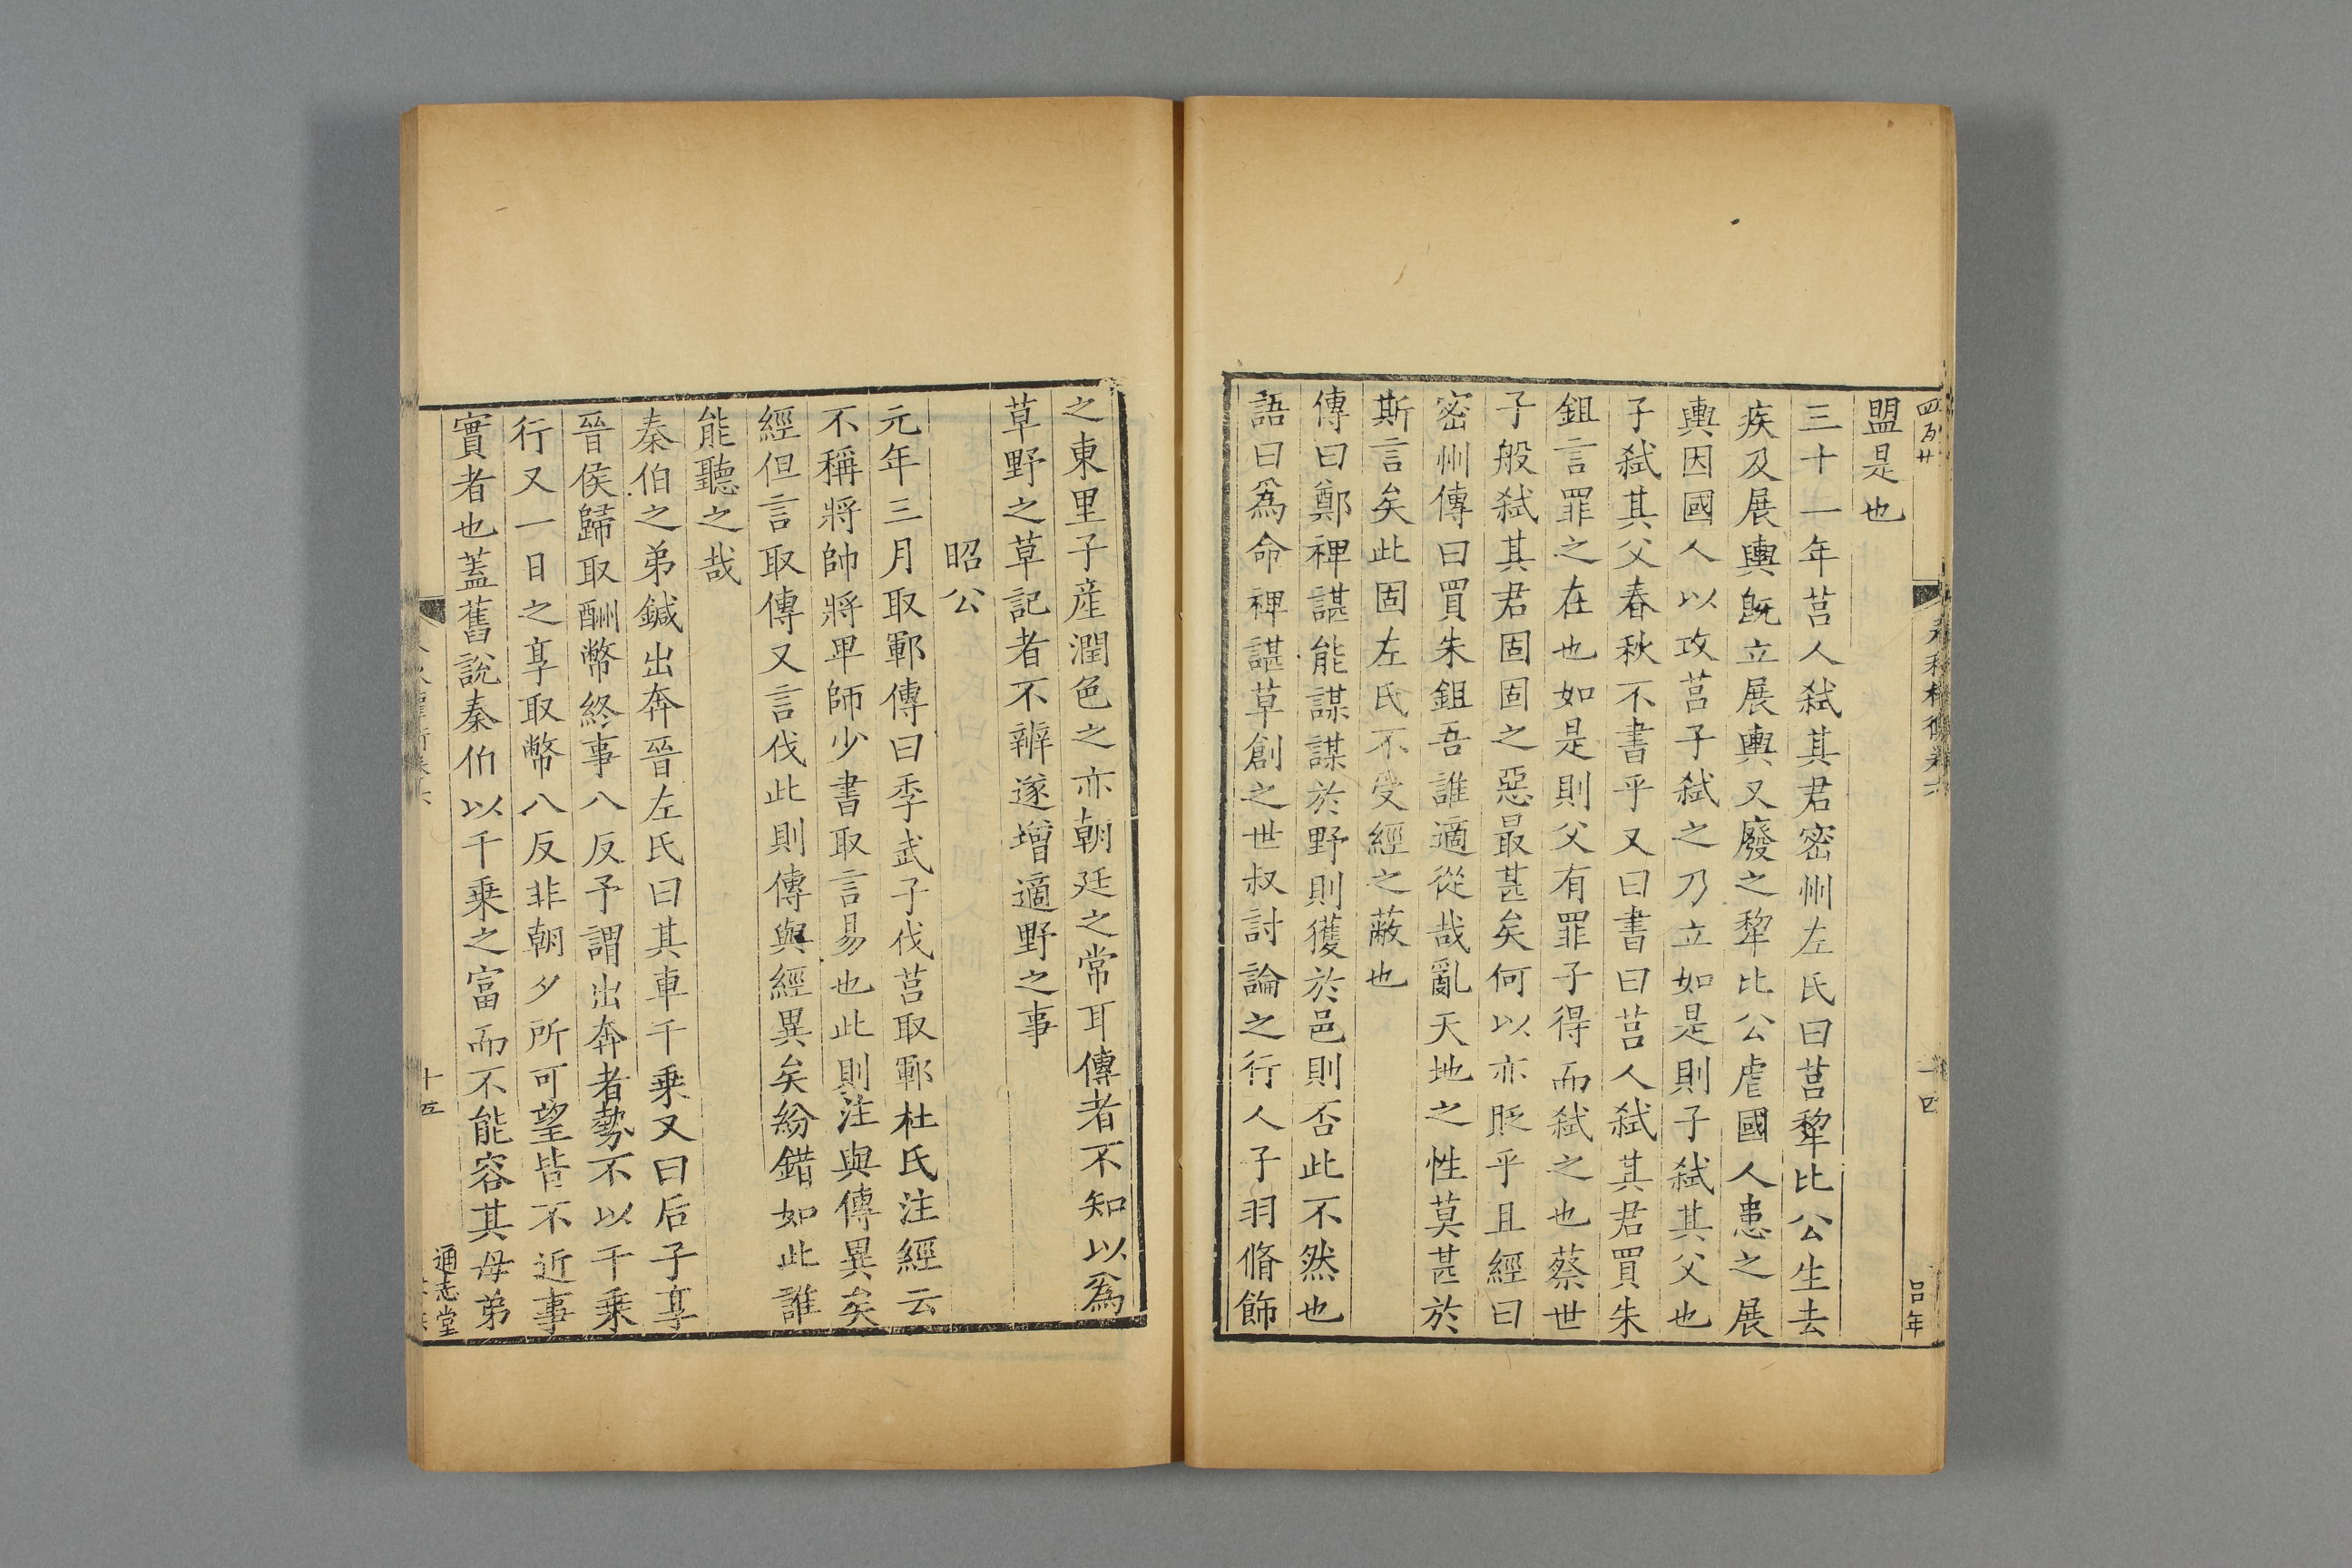 盟是也
三十一年莒人弑其君密州左氏曰莒犂比公生去
疾及展輿旣立展輿又廢之犂比公虐國人患之展
輿因國人以攻莒子弑之乃立如是則子弑其父也
子弑其父春秋不書乎又曰書曰莒人弑其君買朱
鉏言罪之在也如是則父有罪子得而弑之也蔡世
子般弑其君固固之惡最甚矣何以亦貶乎且經曰
密州傳曰買朱鉏吾誰適從哉亂天地之性莫甚於
斯言矣此固左氏不受經之蔽也
傳曰鄭裨諶能謀謀於野則獲於邑則否此不然也
語曰爲命裨諶草創之世叔討論之行人子羽脩飾
之東里子產潤色之亦朝廷之常耳傳者不知以爲
草野之草記者不辨遂增適野之事
昭公
元年三月取鄆傳曰季武子伐莒取鄆杜氏注經云
不稱將帥將卑師少書取言易也此則注與傳異矣
經但言取傳又言伐此則傳與經異矣紛錯如此誰
能聽之哉
秦伯之弟鍼出奔晉左氏曰其車千乗又曰后子享
晉侯歸取酬幣終事八反予謂出奔者勢不以千乗
行又一日之享取幣八反非朝夕所可望皆不近事
實者也蓋舊說秦伯以千乗之富而不能容其母弟
十五
通志堂
呂年